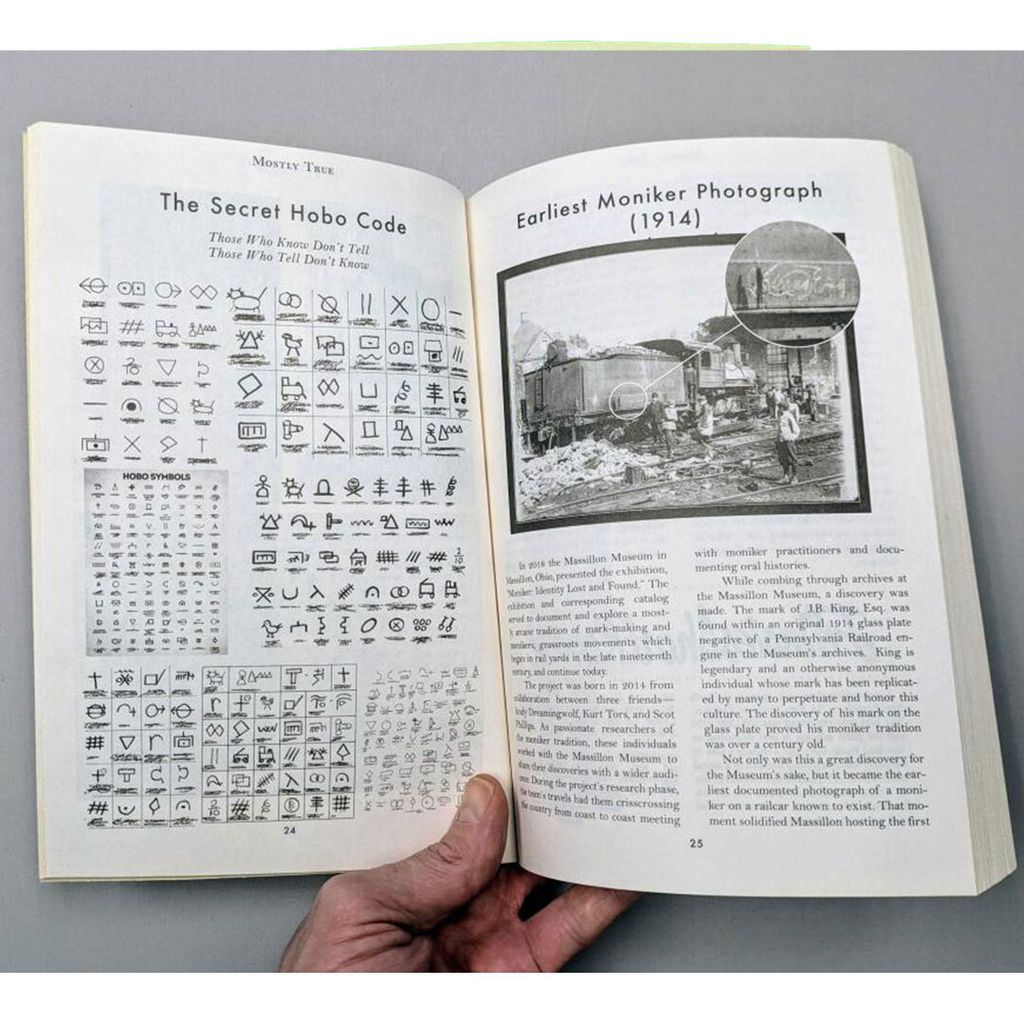 MOSTLY TRUE
The Secret Hobo Code
Those Who Know Don't Tell
Those Who Tell Don't Know
HOBO SYMBOLS
24
Earliest Moniker Photograph
(1914)
In 2018 the Massillon Museum in
Massillon, Ohio, presented the exhibition,
"Moniker: Identity Lost and Found." The
exhibition and corresponding catalog
served to document and explore a most-
ly arcane tradition of mark-making and
monikers, grassroots movements which
began in rail yards in the late nineteenth
century, and continue today.
The project was born in 2014 from
collaboration between three friends—
Andy Dreamingwolf, Kurt Tors, and Scot
Phillips. As passionate researchers of
the moniker tradition, these individuals
worked with the Massillon Museum to
share their discoveries with a wider audi-
ence. During the project's research phase,
the team's travels had them crisscrossing
the country from coast to coast meeting
with moniker practitioners and docu-
menting oral histories.
While combing through archives at
the Massillon Museum, a discovery was
made. The mark of J.B. King, Esq. was
found within an original 1914 glass plate
negative of a Pennsylvania Railroad en-
gine in the Museum's archives. King is
legendary and an otherwise anonymous
individual whose mark has been replicat-
ed by many to perpetuate and honor this
culture. The discovery of his mark on the
glass plate proved his moniker tradition
was over a century old.
Not only was this a great discovery for
the Museum's sake, but it became the ear-
liest documented photograph of a moni-
ker on a railcar known to exist. That mo-
ment solidified Massillon hosting the first
25